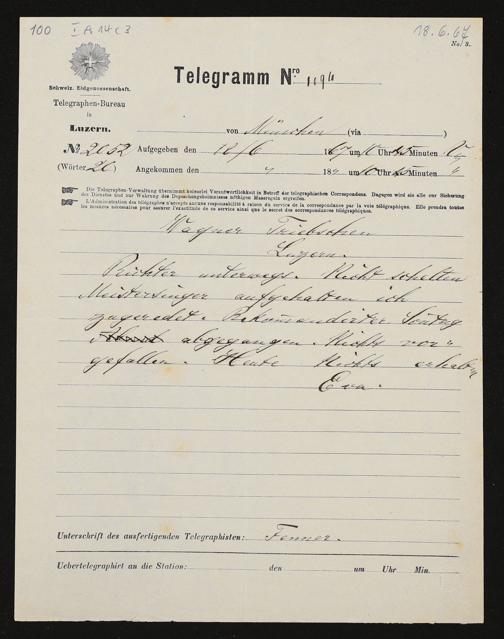 100 I A 14 c 3
18.6.67
No. 3.
Telegramm Nro 1194
Schweiz. Eidgenossenschaft.
Telegraphen-Bureau
in
Luzern.
von München (via )
No 2052 Aufgegeben den 18/6 1867 um 10 Uhr 45 Minuten
(Wörter 20) Angekommen den " 18 " um 10 Uhr 55 Minuten "
Die Telegraphen-Verwaltung übernimmt keinerlei Verantwortlichkeit in Betreff der telegraphischen Correspondenz. Dagegen wird sie alle zur Sicherung
des Dienstes und zur Wahrung des Depeschengeheimnisses nöthigen Massregeln ergreifen.
L'Administration des télégraphes n'accepte aucune responsabilité à raison du service de la correspondance par la voie télégraphique. Elle prendra toutes
les mesures nécessaires pour assurer l'exactitude de ce service ainsi que le secret des correspondances télégraphiques.
Wagner Triebschen
Luzern.
Richter unterwegs. Nicht schelten
Meistersinger aufgehalten ich
zugeredet. Rekomandirter Sontag
abgegangen. Nichts vor=
gefallen. Heute Nichts erhalten
Eva.
Unterschrift des ausfertigenden Telegraphisten: Fenner.
Uebertelegraphirt an die Station: den um Uhr Min.